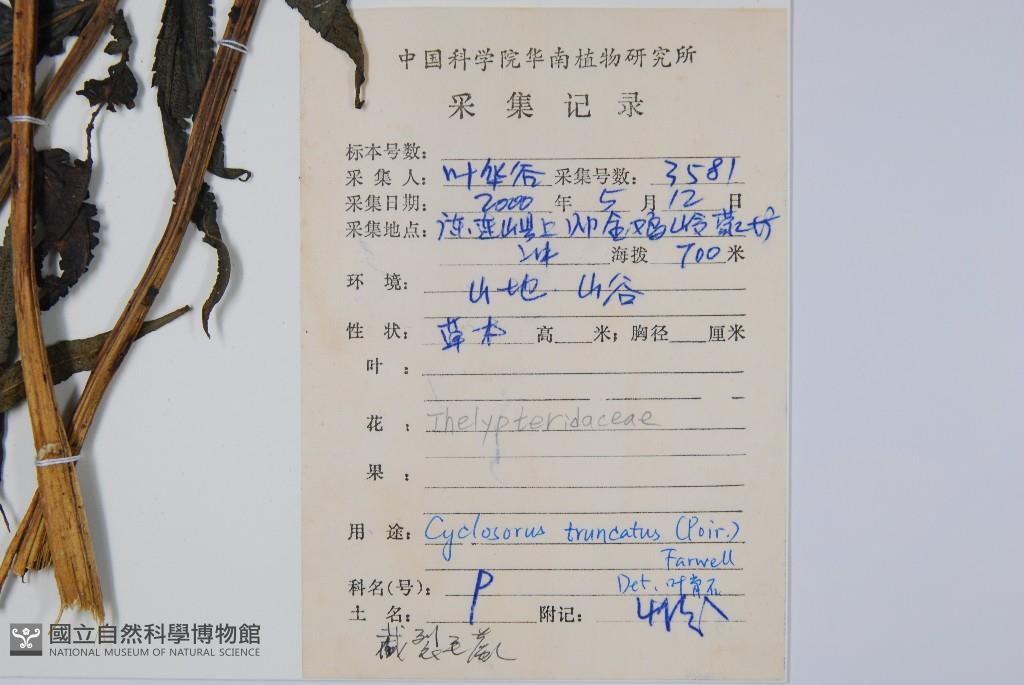 中国科学院华南植物研究所
采集记录
标本号数:
采集人: 叶华谷 采集号数: 3581
采集日期: 2000 年 5 月 12 日
采集地点: 连山县上帅金鸡岭
海拨 700 米
环境: 山地 山谷
性状: 草本 高 米; 胸径 厘米
叶:
花: Thelypteridaceae
果:
用途: Cyclosorus truncatus (Poir.)
Farwell
科名(号): P Det. 叶育石
土名: 附记:
截裂毛蕨
國立自然科學博物館
NATIONAL MUSEUM OF NATURAL SCIENCE